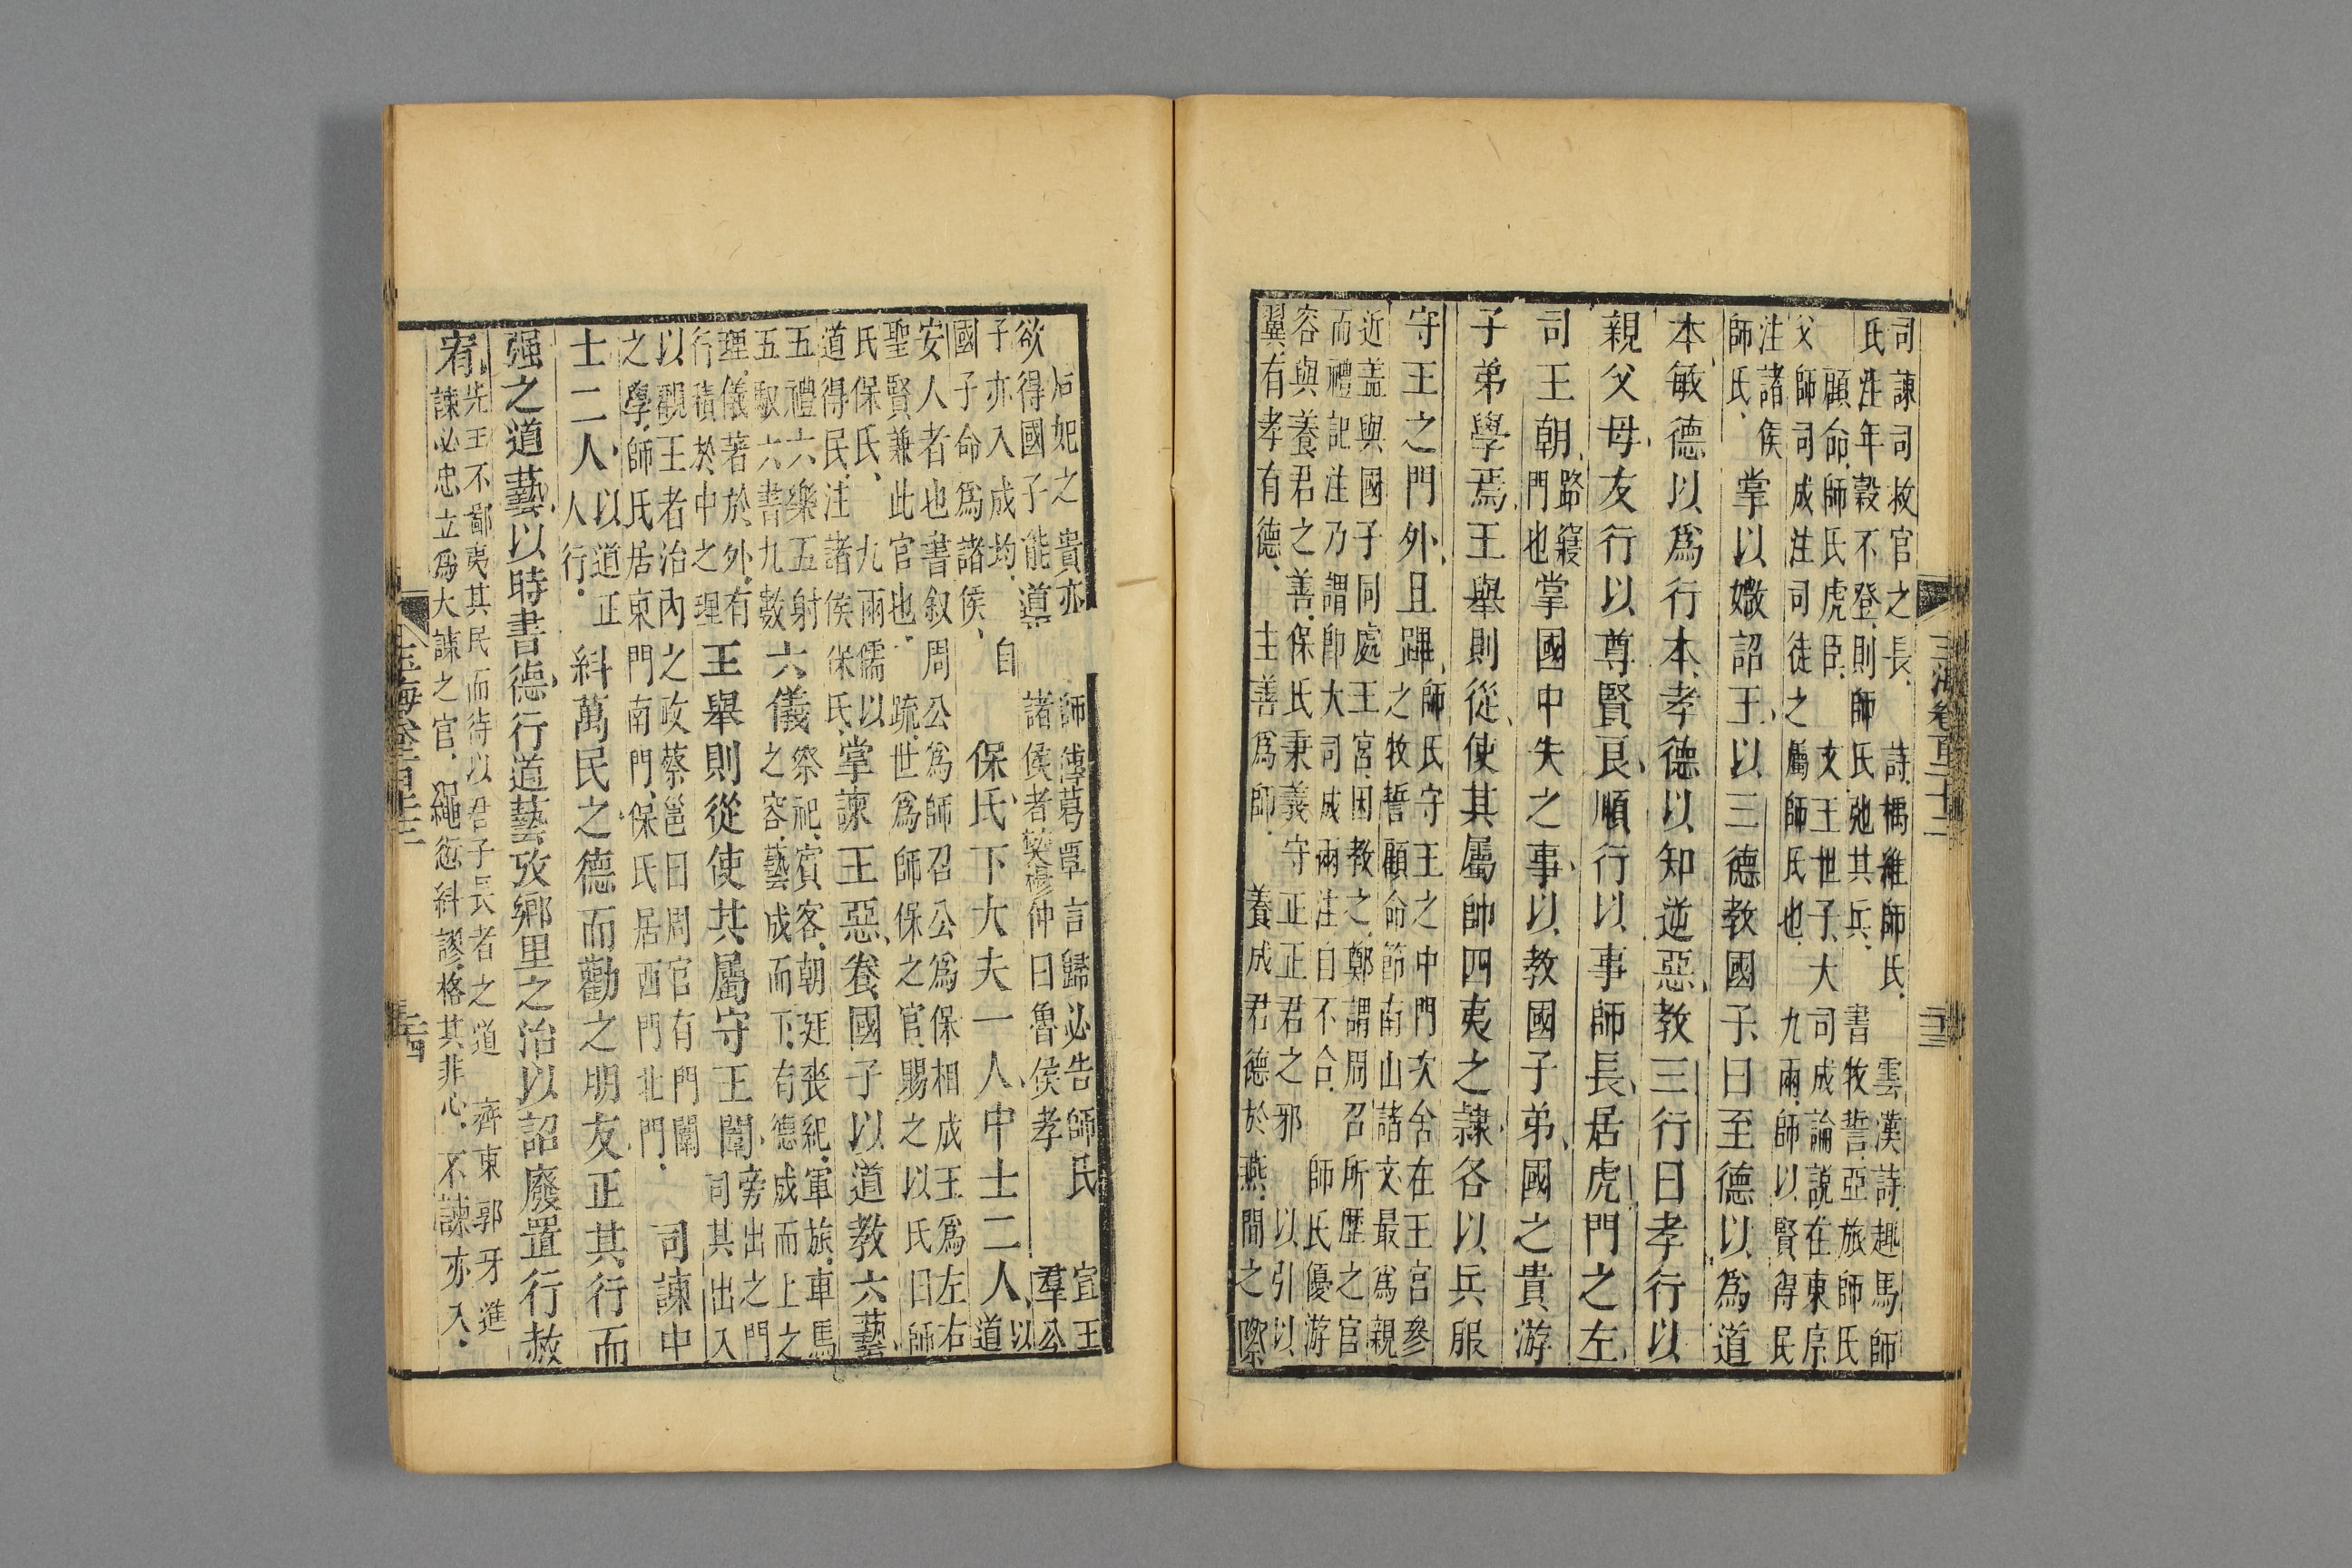 司諫司救官之長詩楀維師氏雲漢詩趣馬師
氏注年穀不登則師氏弛其兵書牧誓亞旅師氏
顧命師氏虎臣文王世子大司成論說在東序
父師司成注司徒之屬師氏也九兩師以賢得民
注諸侯
師氏
掌以媺詔王以三德教國子曰至德以爲道
本敏德以爲行本孝德以知逆惡教三行曰孝行以
親父母友行以尊賢良順行以事師長居虎門之左
司王朝
路寢
門也
掌國中失之事以教國子弟國之貴游
子弟學焉王舉則從使其屬帥四夷之隷各以兵服
守王之門外且蹕
師氏守王之中門次舍在王宮參
之牧誓顧命節南山諸文最爲親
近盖與國子同處王宮因教之鄭謂周召所歷之官
而禮記注乃謂卽大司成兩注自不合師氏優游
容與養君之善保氏秉義守正正君之邪以引以
翼有孝有德主善爲師養成君德於燕間之際
玉海卷百二十二
二十三
后妃之貴亦師傅葛覃言歸必告師氏宣王
欲得國子能導諸侯者樊穆仲曰魯侯孝
羣公
子亦入成均自
國子命爲諸侯
保氏下大夫一人中士二人
以
道
安人者也書叙周公爲師召公爲保相成王爲左右
聖賢兼此官也疏世爲師保之官賜之以氏曰師
氏保氏九兩儒以
道得民注諸侯保氏
掌諫王惡養國子以道教六藝
五禮六樂五射
五馭六書九數
六儀
祭祀賓客朝廷喪紀軍旅車馬
之容藝成而下有德成而上之
理儀著於外有
行積於中之理
王舉則從使其屬守王闈
旁出之門
司其出入
以觀王者治內之政蔡邕曰周官有門闈
之學師氏居東門南門保氏居西門北門
司諫中
士二人
以道正
人行
糾萬民之德而勸之朋友正其行而
强之道藝以時書德行道藝攷鄉里之治以詔廢置行赦
宥
先王不鄙夷其民而待以君子長者之道齊東郭牙進
諫必忠立爲大諫之官繩愆糾謬格其非心不諫亦入
玉海卷百二十二
二十四